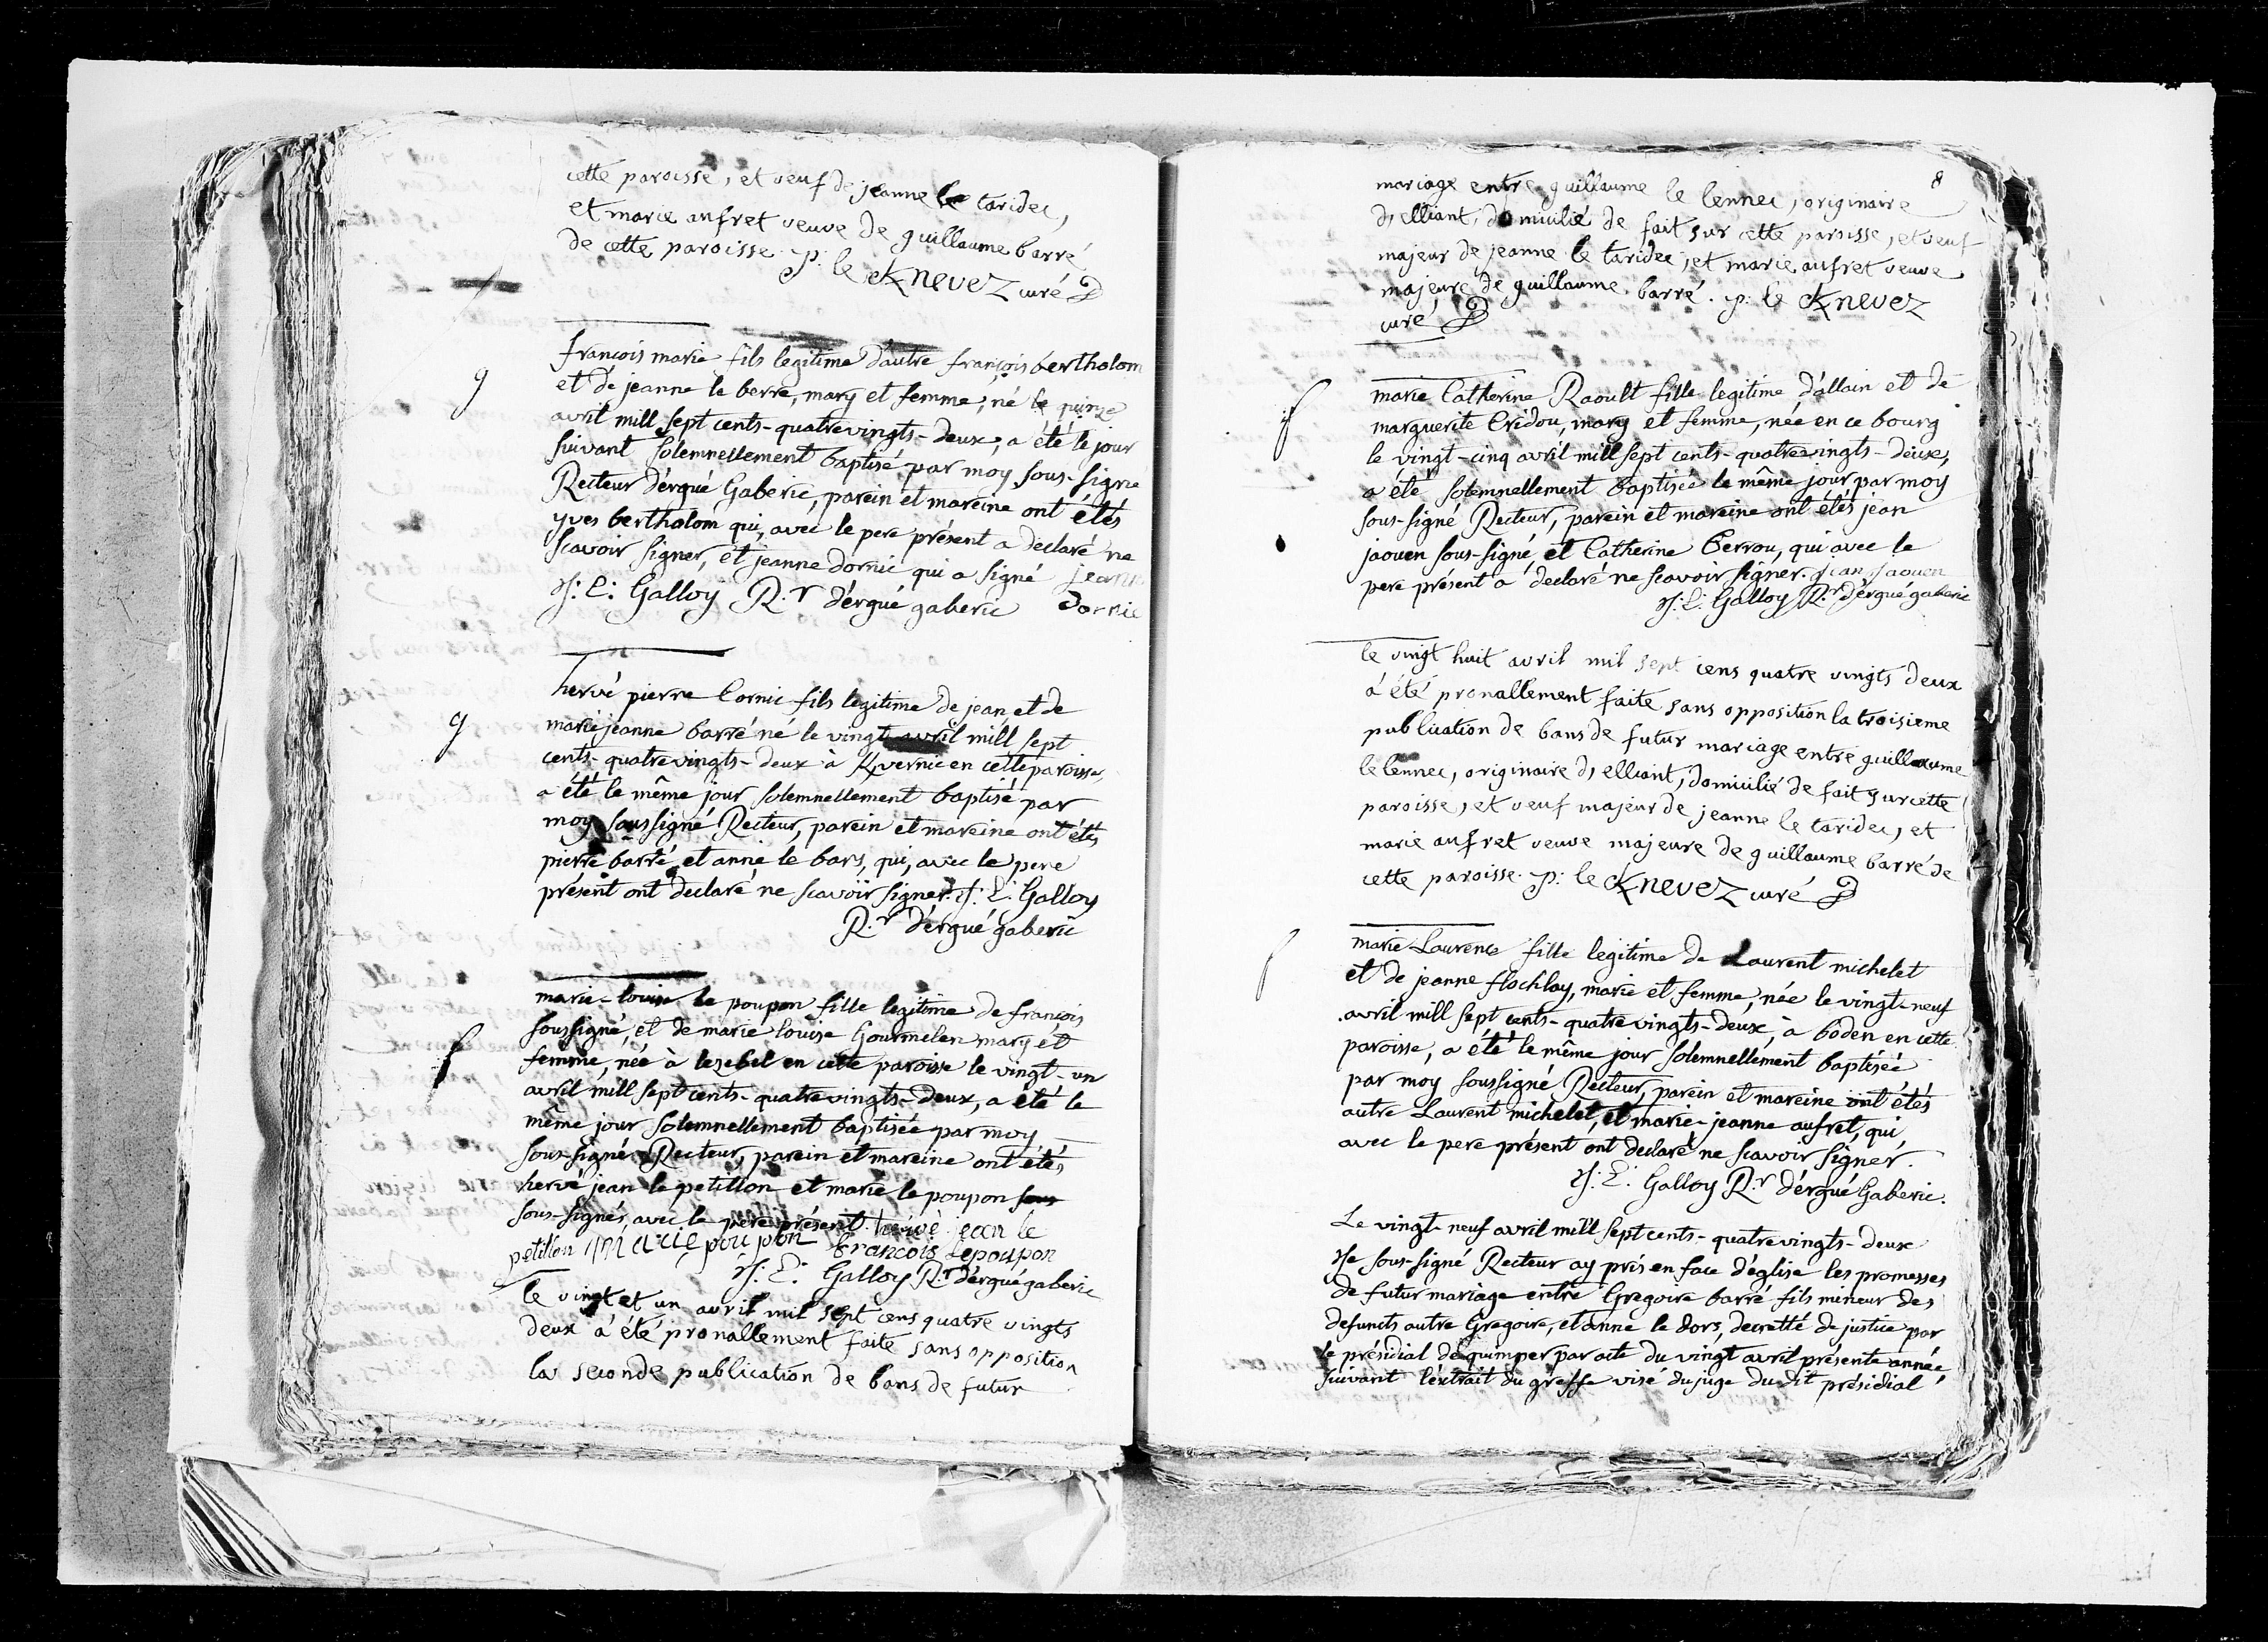 cette paroisse, et veuf de jeanne le taridec,
et marie aufret veuve de guillaume barré
de cette paroisse. p: le Knevez curé
françois marie fils legitime d'autre françois bertholom
g
et de jeanne le berre, mary et femme, né le quinze
avril mill sept cents-quatrevingts-deux, a été le jour
suivant solemnellement baptisé par moy sous-signé
Recteur d'ergué Gaberic, parein et mareine ont étés
yves bertholom qui, avec le pere présent a declaré ne
scavoir signer, et jeanne dornic qui a signé jeanne
J: L: Galloy R.r d'ergué gaberic dornic
hervé pierre Cornic fils legitime de jean et de
g
marie jeanne barré né le vingt avril mill sept
cents-quatrevingts-deux à Kvernic en cette paroisse,
a été le même jour solemnellement baptisé par
moy soussigné Recteur, parein et mareine ont étés
pierre barré et anne le bars, qui, avec le pere
présent ont declaré ne scavoir signer. J: L: Galloy
R.r d'ergué gaberic
marie-louise le poupon fille legitime de françois
soussigné, et de marie louise Gourmelen mary et
f
femme, née à lezebel en cette paroisse le vingt-un
avril mill sept cents-quatrevingts-deux, a été le
même jour solemnellement baptisée par moy
sous-signé Recteur, parein et mareine ont étés
hervé jean le petillon et marie le poupon sous
sous-signés, avec le pere présent. hervé jean le
petillon marie poupon francois lepoupon
J: L: Galloy R.r d'ergué gaberic
le vingt et un avril mil sept cens quatre vingts
deux a été pronallement faite sans opposition
la seconde publication de bans de futur
8
mariage entre guillaume le lennec, originaire
d, elliant, domicilié de fait sur cette paroisse, et veuf
majeur de jeanne le taridec, et marie aufret veuve
majeure de guillaume barré. p: le Knevez
curé
marie Catherine Raoult fille legitime d'allain et de
f
marguerite Cridou, mary et femme, née en ce bourg
le vingt-cinq avril mill sept cents-quatrevingts-deux,
a été solemnellement baptisée le même jour par moy
sous-signé Recteur, parein et mareine ont étés jean
jaouen sous-signé et Catherine Perrou, qui avec le
pere présent a declaré ne scavoir signer. jean jaouen
J: L: Galloy R.r d'ergué gaberic
le vingt huit avril mil sept cens quatre vingts deux
a été pronallement faite sans opposition la troisieme
publication de bans de futur mariage entre guillaume
le lennec, originaire d, elliant, domicilié de fait sur cette
paroisse, et veuf majeur de jeanne le taridec, et
marie aufret veuve majeure de guillaume barré de
cette paroisse. p: le Knevez curé
marie Laurence fille legitime de Laurent michelet
f
et de jeanne flochlay, marie et femme, née le vingt-neuf
avril mill sept cents-quatrevingts-deux, à boden en cette
paroisse, a été le même jour solemnellement baptisée
par moy soussigné Recteur, parein et mareine ont étés
autre Laurent michelet, et marie-jeanne aufret, qui,
avec le pere présent ont declaré ne scavoir signer.
J: L: Galloy R.r d'ergué Gaberic.
Le vingt-neuf avril mill sept cents-quatrevingts-deux
Je sous-signé Recteur ay pris en face d'eglise les promesses
de futur mariage entre Gregoire barré fils mineur des
defunts autre Gregoire, et anne le dors, decretté de justice par
le présidial de quimper par acte du vingt avril présente année
suivant l'extrait du greffe visé du juge du dit présidial